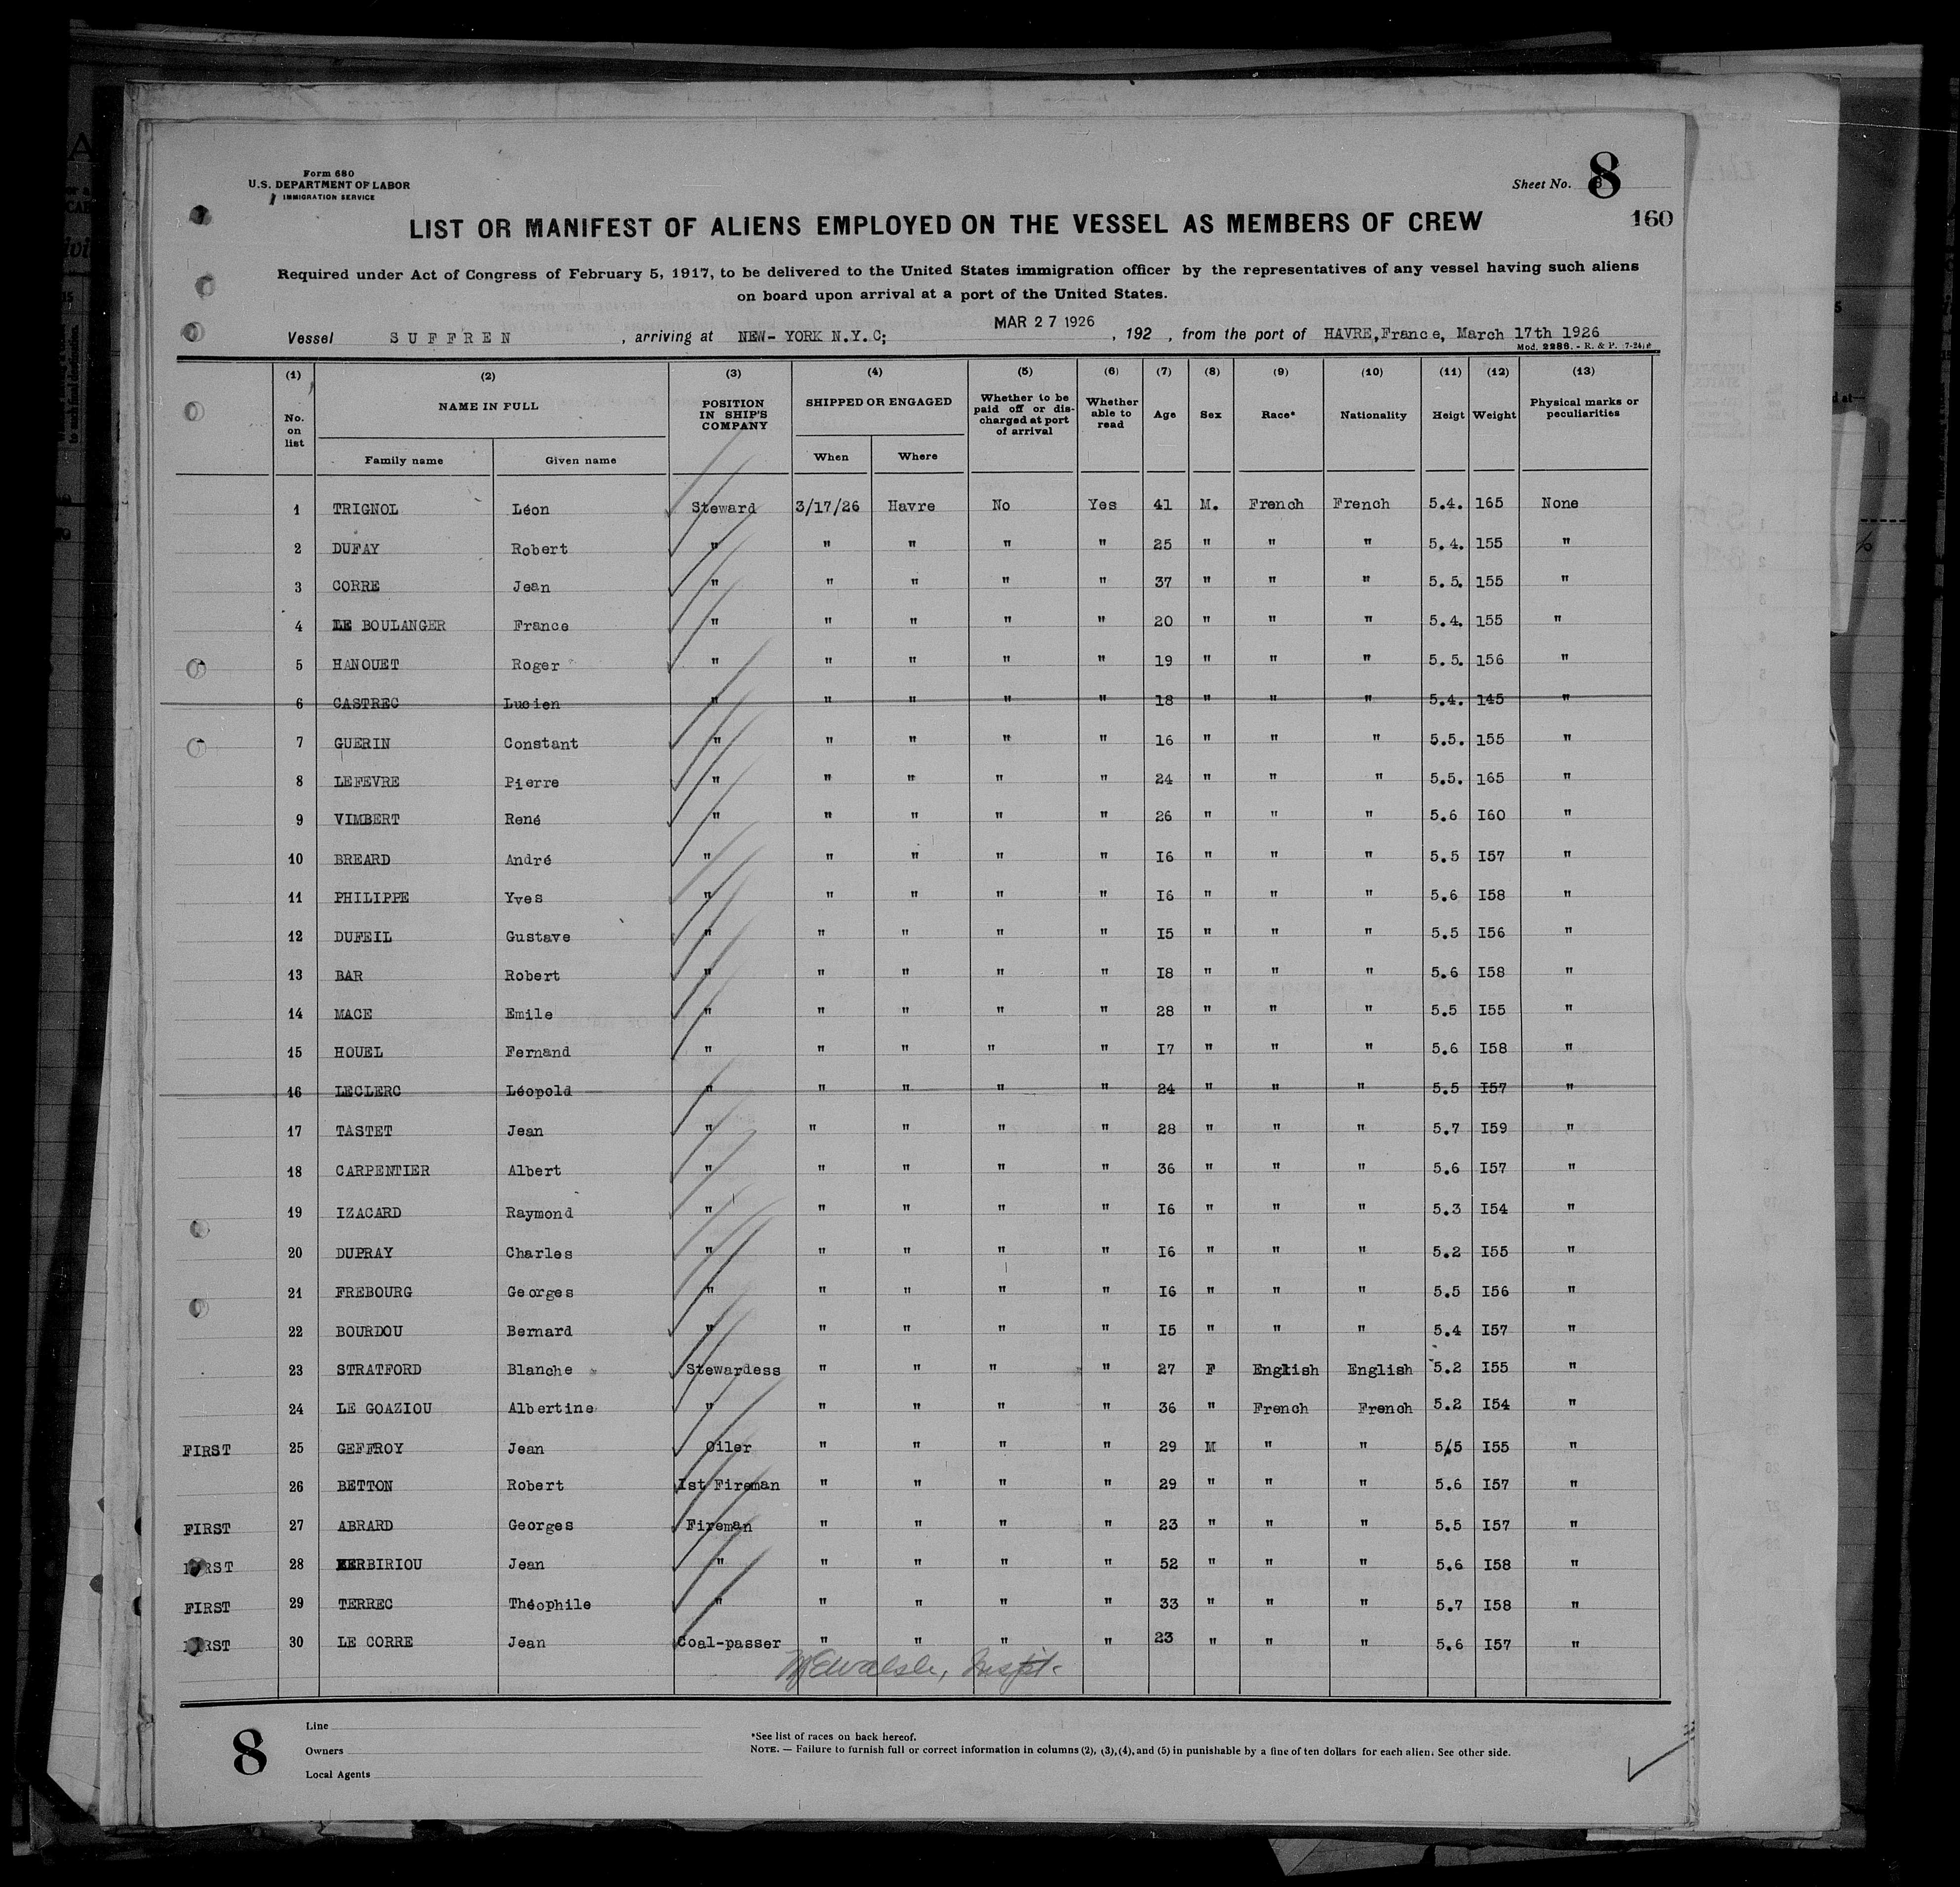 Form 680
U.S. DEPARTMENT OF LABOR
IMMIGRATION SERVICE
Sheet No. 8
160
LIST OR MANIFEST OF ALIENS EMPLOYED ON THE VESSEL AS MEMBERS OF CREW
Required under Act of Congress of February 5, 1917, to be delivered to the United States immigration officer by the representatives of any vessel having such aliens
on board upon arrival at a port of the United States.
MAR 27 1926
Vessel SUFFREN , arriving at NEW- YORK N.Y.C; , 192 , from the port of HAVRE,France, March 17th 1926
Mod. 2286. - R. & P. 7-24
(1) (2) (3) (4) (5) (6) (7) (8) (9) (10) (11) (12) (13)
No. on list NAME IN FULL POSITION IN SHIP'S COMPANY SHIPPED OR ENGAGED Whether to be paid off or discharged at port of arrival Whether able to read Age Sex Race* Nationality Heigt Weight Physical marks or peculiarities
Family name Given name When Where
1 TRIGNOL Léon Steward 3/17/26 Havre No Yes 41 M. French French 5.4. 165 None
2 DUFAY Robert " " " " " 25 " " " 5.4. 155 "
3 CORRE Jean " " " " " 37 " " " 5.5. 155 "
4 LE BOULANGER France " " " " " 20 " " " 5.4. 155 "
5 HANOUET Roger " " " " " 19 " " " 5.5. 156 "
6 CASTREC Lucien " " " " " 18 " " " 5.4. 145 "
7 GUERIN Constant " " " " " 16 " " " 5.5. 155 "
8 LEFEVRE Pierre " " " " " 24 " " " 5.5. 165 "
9 VIMBERT René " " " " " 26 " " " 5.6 I60 "
10 BREARD André " " " " " I6 " " " 5.5 I57 "
11 PHILIPPE Yves " " " " " I6 " " " 5.6 I58 "
12 DUFEIL Gustave " " " " " I5 " " " 5.5 I56 "
13 BAR Robert " " " " " I8 " " " 5.6 I58 "
14 MACE Emile " " " " " 28 " " " 5.5 I55 "
15 HOUEL Fernand " " " " " I7 " " " 5.6 I58 "
16 LECLERC Léopold " " " " " 24 " " " 5.5 I57 "
17 TASTET Jean " " " " " 28 " " " 5.7 I59 "
18 CARPENTIER Albert " " " " " 36 " " " 5.6 I57 "
19 IZACARD Raymond " " " " " I6 " " " 5.3 I54 "
20 DUPRAY Charles " " " " " I6 " " " 5.2 I55 "
21 FREBOURG Georges " " " " " I6 " " " 5.5 I56 "
22 BOURDOU Bernard " " " " " I5 " " " 5.4 I57 "
23 STRATFORD Blanche Stewardess " " " " 27 F English English 5.2 I55 "
24 LE GOAZIOU Albertine " " " " " 36 " French French 5.2 I54 "
FIRST 25 GEFFROY Jean Oiler " " " " 29 M " " 5/5 I55 "
26 BETTON Robert Ist Fireman " " " " 29 " " " 5.6 I57 "
FIRST 27 ABRARD Georges Fireman " " " " 23 " " " 5.5 I57 "
FIRST 28 KERBIRIOU Jean " " " " " 52 " " " 5.6 I58 "
FIRST 29 TERREC Théophile " " " " " 33 " " " 5.7 I58 "
FIRST 30 LE CORRE Jean Coal-passer " " " " 23 " " " 5.6 I57 "
Walsh, Inspt.
8
Line
Owners
Local Agents
*See list of races on back hereof.
NOTE. — Failure to furnish full or correct information in columns (2), (3), (4), and (5) in punishable by a fine of ten dollars for each alien. See other side.